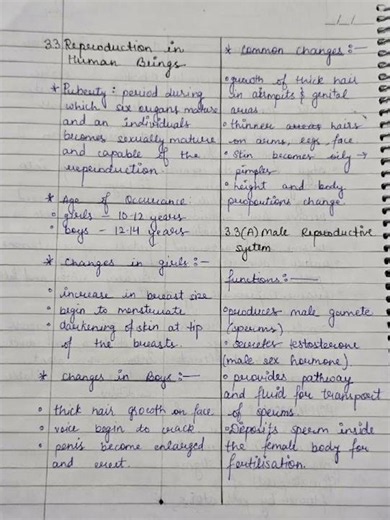 3.3 Reproduction in
Human Beings
* Puberty : period during
which sex organs mature
and an individuals
becomes sexually mature
and capable of the
reproduction.
* Age of Occurance
• girls – 10-12 years
• boys – 12-14 years
* Changes in girls :-
• increase in breast size
• begin to menstruate
• darkening of skin at tip
of the breasts.
* Changes in Boys :-
• thick hair growth on face
• voice begin to crack
• penis become enlarged
and erect.
* Common Changes :-
• growth of thick hair
in armpits & genital
areas.
• thinner hairs
on arms, legs, face
• skin becomes oily →
pimples
• height and body
proportions change
3.3(A) Male Reproductive
System
functions :-
• produces male gamete
(sperms)
• secretes testosterone
(male sex hormone)
• provides pathway
and fluid for transport
of sperms.
• Deposits sperm inside
the female body for
fertilisation.